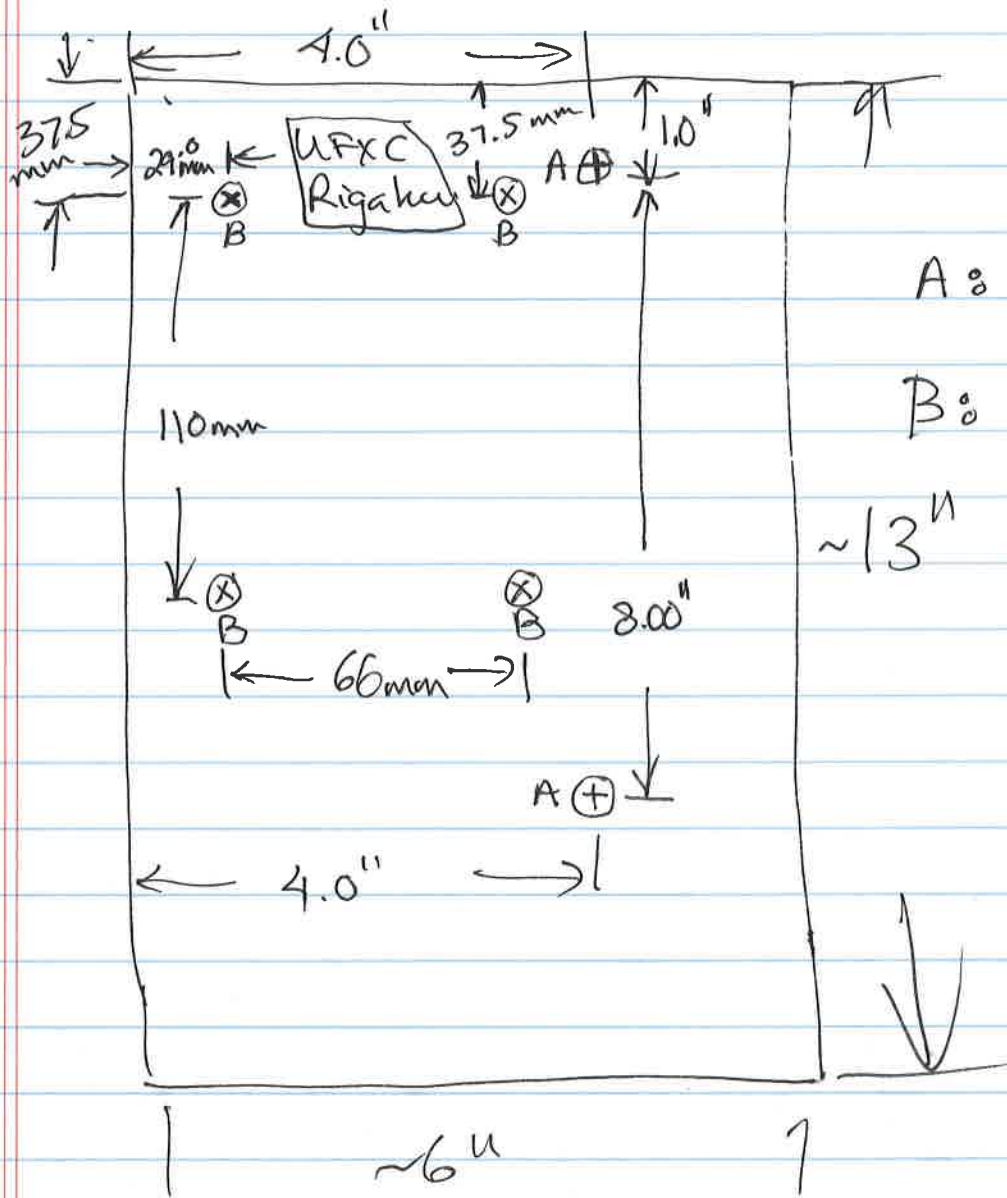 4.0"
37.5 mm
29.0 mm
UFXC
Rigaku
37.5 mm
A
1.0"
B
B
A:
110mm
B:
~13"
B
B
8.00"
66mm
A
4.0"
~6"